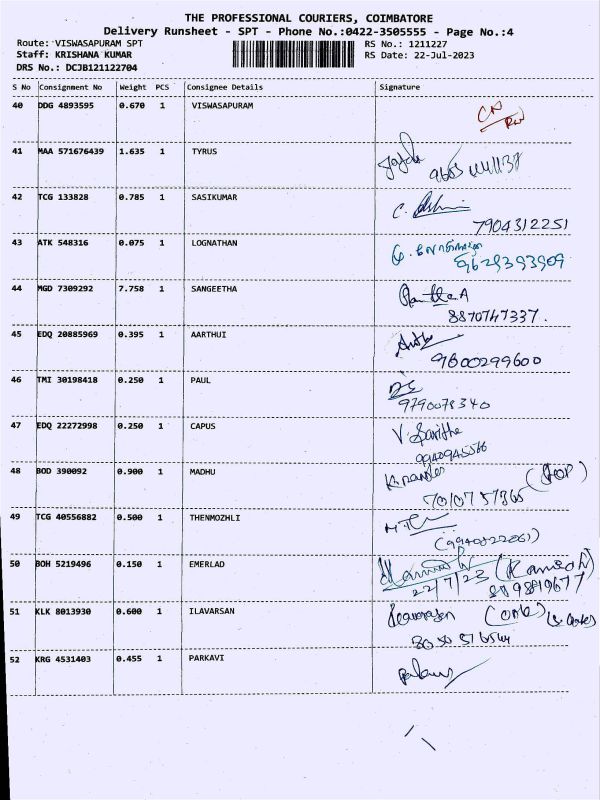 THE PROFESSIONAL COURIERS, COIMBATORE
Delivery Runsheet - SPT - Phone No.:0422-3505555 - Page No.:4
Route: VISWASAPURAM SPT RS No.: 1211227
Staff: KRISHANA KUMAR RS Date: 22-Jul-2023
DRS No.: DCJB121122704
S No Consignment No Weight PCS Consignee Details Signature
40 DDG 4893595 0.670 1 VISWASAPURAM
41 MAA 571676439 1.635 1 TYRUS
42 TCG 133828 0.785 1 SASIKUMAR C.
7904312251
43 ATK 548316 0.075 1 LOGNATHAN
9629393909
44 MGD 7309292 7.758 1 SANGEETHA
8870747337.
45 EDQ 20885969 0.395 1 AARTHUI
9600299600
46 TMI 30198418 0.250 1 PAUL
9790078340
47 EDQ 22272998 0.250 1 CAPUS V.
48 BOD 390092 0.900 1 MADHU
7010757365
49 TCG 40556882 0.500 1 THENMOZHLI
50 BOH 5219496 0.150 1 EMERLAD
22/7/23
51 KLK 8013930 0.600 1 ILAVARSAN
52 KRG 4531403 0.455 1 PARKAVI